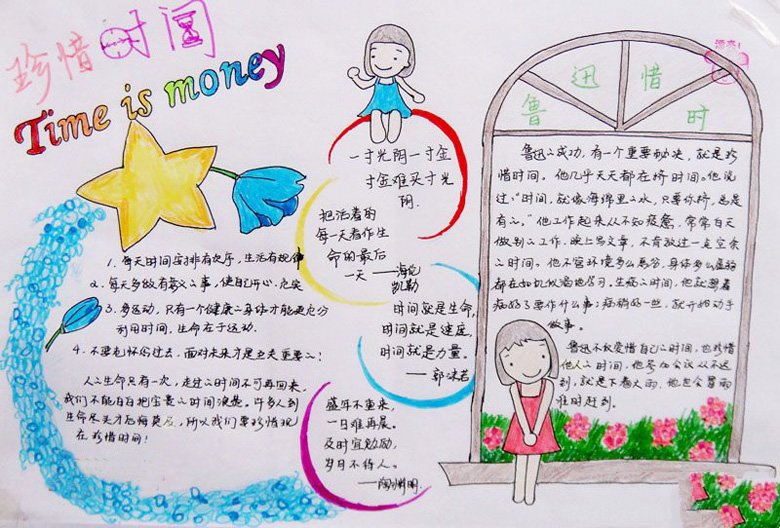 珍惜时间
Time is money
1. 每天时间安排有次序，生活有规律
2. 每天多做有意义之事，使自己开心、充实
3. 多运动，只有一个健康之身体才能更充分
利用时间，生命在于运动.
4. 不要光怀念过去，面对未来才是至关重要之！
人之生命只有一次，走过之时间不可再回来，
我们不能白白把宝贵之时间浪费。许多人到
生命尽头才后悔莫及，所以我们要珍惜现
在珍惜时间！
一寸光阴一寸金
寸金难买寸光
阴.
把活着的
每一天看作生
命的最后
一天 ——海伦
凯勒
时间就是生命，
时间就是速度，
时间就是力量。
——郭沫若
盛年不重来，
一日难再晨。
及时宜勉励，
岁月不待人。
——陶渊明
漂亮！
鲁迅惜时
鲁迅之成功，有一个重要秘决，就是珍
惜时间。他几乎天天都在挤时间。他说
过：“时间，就像海绵里之水，只要你挤，总是
有之。”他工作起来从不知疲惫，常常白天
做别之工作，晚上写文章，不肯放过一点空余
之时间。他不管环境多么恶劣、身体多么虚弱
都在如饥似渴地学习。生病之时间，他就想着
病好了要作什么事；病稍好一些，就开始动手
做事。
鲁迅不仅爱惜自己之时间，也珍惜
他人之时间，他参加会议从不迟
到，就是下着大雨，他也会冒雨
准时赶到.